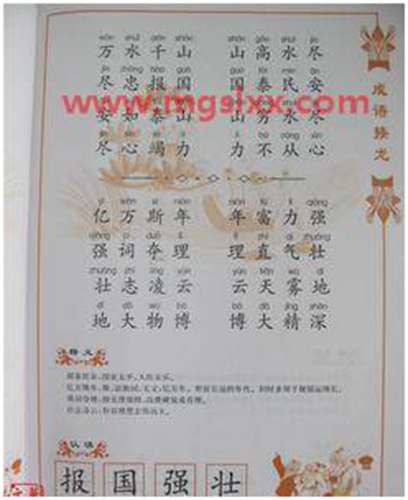 wàn shuǐ qiān shān shān gāo shuǐ jìn
万水千山 山高水尽
jìn zhōng bào guó guó tài mín ān
尽忠报国 国泰民安
www.mgslxx.com
安如泰山 山穷水尽
尽心竭力 力不从心
yì wàn sī nián nián fù lì qiáng
亿万斯年 年富力强
强词夺理 理直气壮
zhuàng zhì líng yún yún tiān wù dì
壮志凌云 云天雾地
dì dà wù bó bó dà jīng shēn
地大物博 博大精深
成语接龙
释义
国泰民安:国家太平,人民安乐。
认读
报国强壮